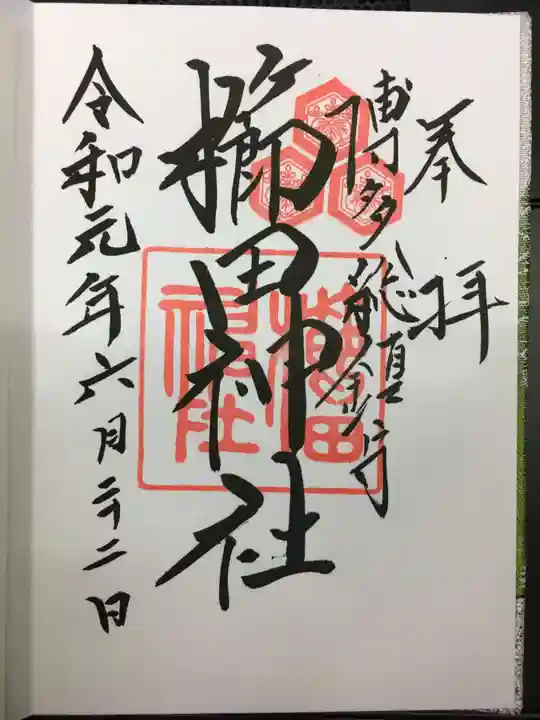 奉拝
博多総鎮守
櫛田神社
令和元年六月二十二日